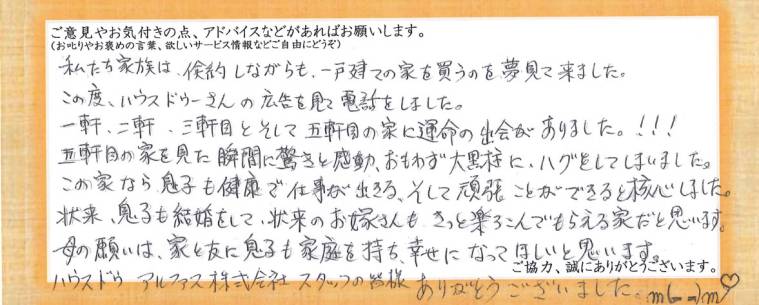 ご意見やお気付きの点、アドバイスなどがあればお願いします。
(お叱りやお褒めの言葉、欲しいサービス情報などご自由にどうぞ)
私たち家族は、倹約しながらも、一戸建ての家を買うのを夢見て来ました。
この度、ハウスドゥーさんの広告を見て電話をしました。
一軒、二軒、三軒目とそして五軒目の家に運命の出会がありました。!!!
五軒目の家を見た瞬間に驚きと感動、おもわず大黒柱に、ハグをしてしまいました。
この家なら息子も健康で仕事が出きる、そして頑張ことができると核心しました。
状来、息子も結婚をして、状来のお嫁さんも、きっと楽ろこんでもらえる家だと思います。
母の願いは、家と友に息子も家庭を持ち、幸せになってほしいと思います。
ご協力、誠にありがとうございます。
ハウスドゥ アルファス株式会社 スタッフの皆様 ありがとうございました。m(_ _)m♡